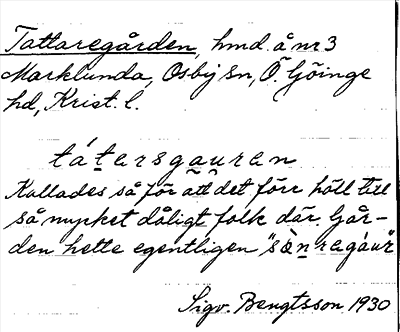 Tattaregården, hmd. å nr 3
Marklunda, Osby sn, Ö. Göinge
hd, Krist. l.
tátersgauren
Kallades så för ått det förr höll till
så mycket dåligt folk där. Går-
den hette egentligen "sö̀nregàur"
Sigv. Bengtsson 1930